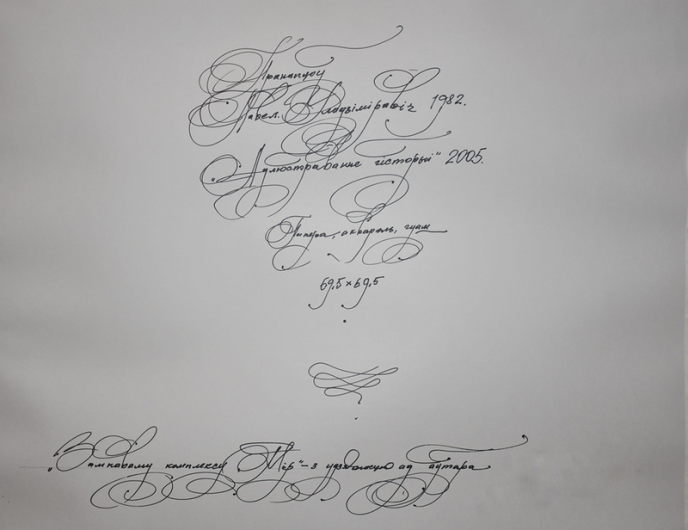 Пранапцоў
Павел. Уладзіміравіч 1982.
„Адлюстраванне гісторыі“ 2005.
Папера, акварэль, гуаш
69,5 × 69,5
„Замкавому комплексу Мір“ – з удзячнасцю ад аўтара